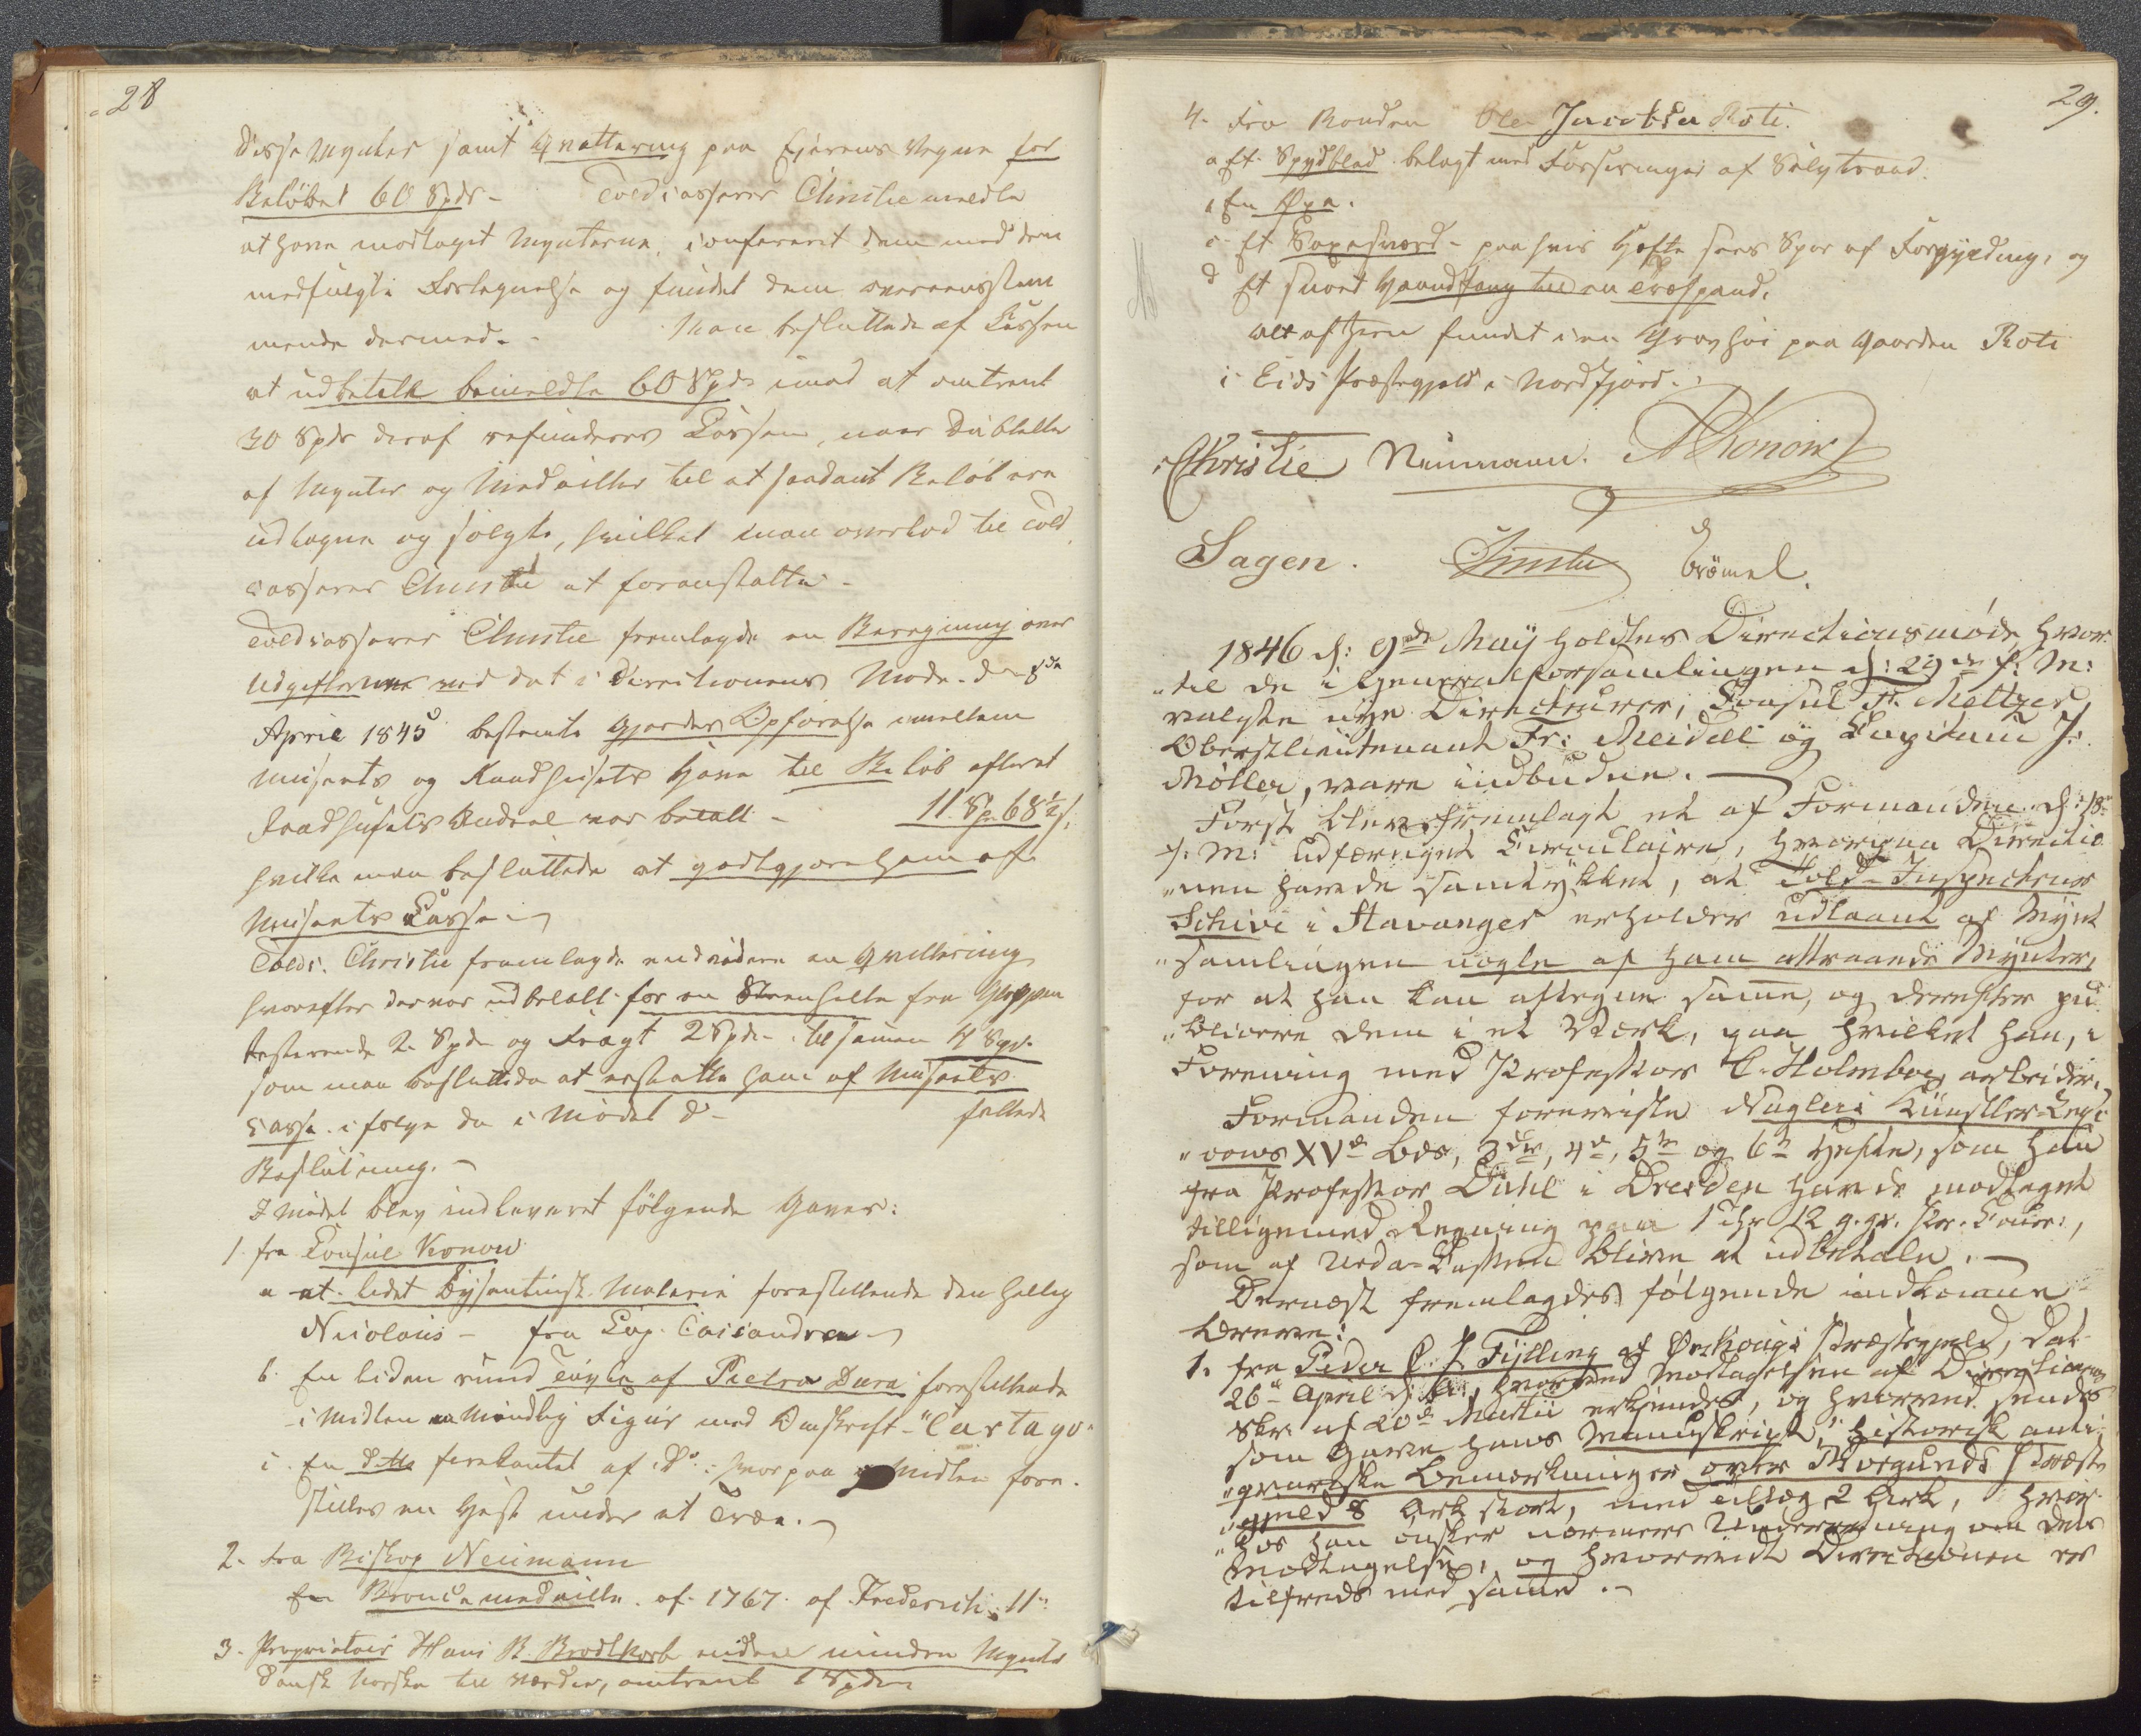 28
disse Mynter samt Qvittering paa Ejerens Vegne for
Beløbet 60 Spdr - Toldcasserer Christie meldte
at have modtaget Mynterne, confereret dem med den
medfulgte Fortegnelse og fundet dem overeensstem
mende dermed. - Man besluttede af Cassen
at udbetale bemeldte 60 Spdr imod at omtrent
30 Spdr deraf refunderes Cassen, naar Dubletter
af Mynter og Medailler til et saadant Beløb ere
udtagne og solgte, hvilket man overlod til Told
casserer Christie at foranstalte -
Toldcasserer Christie fremlagde en Beregning over
Udgifterne ved det i Directionens Møde d. 8de
April 1845 bestemte Gjerdes Opførelse imellem
Museets og Raadhusets Have til Beløb efterat
Raadhusets Andeel var betalt - 11 Sp. 68½ s.
hvilke man besluttede at godtgjøre ham af
Museets Casse -
Toldc. Christie fremlagde endvidere en Qvittering
hvorefter der var udbetalt for en Steenhelle fra Gloppen
resterende 2 Spdr og Fragt 2 Spdr - tilsammen 4 Spd.
som man besluttede at erstatte ham af Museets
Casse i følge den i Mødet d - fattede
Beslutning. -
I Mødet blev indleveret følgende Gaver:
1. fra Consul Konow
a et lidet Bysantinsk Malerie forestillende den hellige
Nicolaus - fra Cap. Cassandra -
b. En liden rund Tavle af Pietra Dura forestillende
i Midten en Mandlig Figur med Omskrift - "Cartago"
c. En ditto firekantet af do: hvorpaa i Midten fore-
stilles en Hest under et Træe. -
2. fra Biskop Neumann
En Bronce medaille af 1767 af Frederich II.
3. Proprietair Hans B. Brodtkorb endeel mindre Mynter
Dansk Norske til Værdie, omtrent 1 Spdr
29.
4. fra Bonden Ole Jacobsen Roti.
a Et Spydblad belagt med Forsiringer af Sølvtraad.
b En Øxe.
c Et Saxesværd - paa hvis Hefte sees Spor af Forgyldning, og
d Et snoet Haandfang til en Træspand.
alt af Jern fundet i en Gravhøi paa Gaarden Roti
i Eids Præstegjeld i Nordfjord.
Christie Neumann. A Konow
Sagen. Irmler Grømel.
1846 d: 9de May holdtes Directionsmøde, hvor-
"til de i Generalforsamlingen d: 29de f: M:
valgte nye Directeurer, Consul F. Meltzer,
Oberstlieutenant Fr: Meidell og Capitain J:
Møller, vare indbudne. -
Først blev fremlagt et af Formanden d: 18de
f: M: udfærdiget Circulaire, hvorpaa Directio
"nen havde samtykket, at Told-Inspecteur
Schive i Stavanger erholder udlaant af Mynt
"samlingen nogle af ham attraaede Mynter,
for at han kan aftegne samme, og derefter pu
"blicere dem i et Værk, paa hvilket han, i
Forening med Professor C. Holmboe arbeider.
Formanden foreviiste Naglers Künstler-Lexi
"cons XVde Bds, 3die, 4de, 5te og 6te Hefte, som han
fra Professor Dahl i Dresden havde modtaget
tilligemed Regning paa 1 Thr 12 g.gr. Pr. Cour.,
som af Veda-Cassen bliver at udbetale. -
Dernæst fremlagdes følgende indkomne
Breve:
1. fra Peder C. L. Fylling af Ørskougs Præstegjeld, dat.
26de April d: A:, hvorved Modtagelsen af Directionens
Skr. af 20de Martii erkjendes, og hvorved sendes
som Gave hans Manuskript, historisk anti-
"qvariske Bemærkninger over Borgunds Præste
"gjeld 8 Ark stort, med Tillæg 2 Ark, hvor-
"hos han ønsker nærmere Underretning om dets
Modtagelse, og hvorvidt Directionen er
tilfreds med samme. -